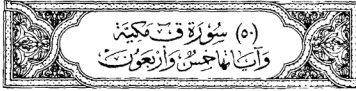 (٥٠) سُورَةُ ق مَكِيَّة
وَآيَاتُهَا خَمْسٌ وَأَرْبَعُونَ